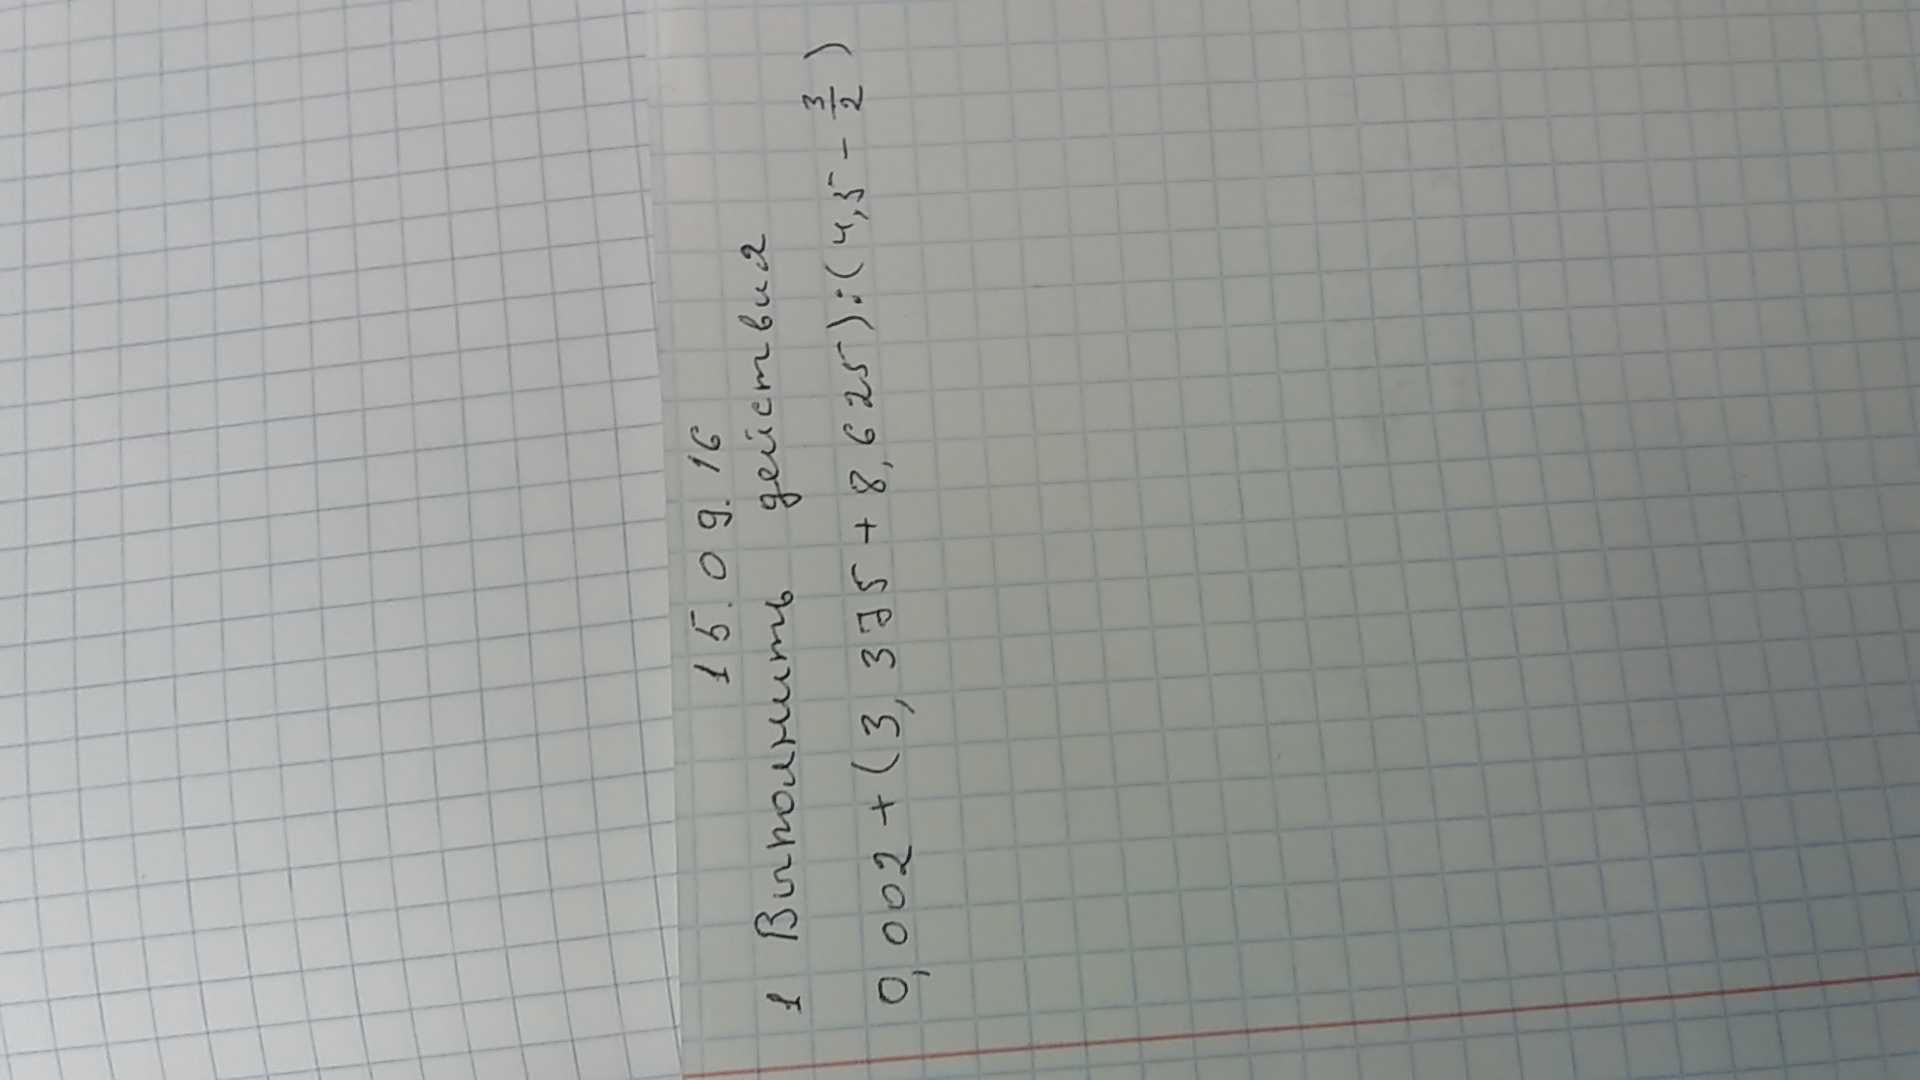 15.09.16
1 Выполнить действия
0,002 + (3,375 + 8,625):(4,5 - 3/2)